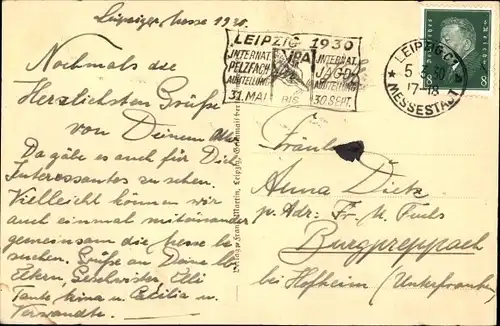 Leipziger Messe 1930.
Nochmals die
Herzlichsten Grüße
von Deinem
Da gäbe es auch für Dich
Interessantes zu sehen.
Vielleicht können wir
auch einmal miteinander
gemeinsam die Messe be
suchen. Grüße an Deine lb
Eltern, Geschwister, Elli
Tante, Anna u. Cäcilia u.
Verwandte.
LEIPZIG 1930
INTERNAT.
PELZFACH
AUSTELLUNG
IPA
INTERNAT.
JAGD
AUSTELLUNG
31. MAI BIS 30. SEPT.
LEIPZIG C1
5 30
17-18
* MESSESTADT *
Deutsches Reich
8 8
Verlag Franz Martin, Leipzig,
Fräulein
Anna Dietz
p. Adr: Fr. M. Fuchs
Burgpreppach
bei Hofheim (Unterfranken)